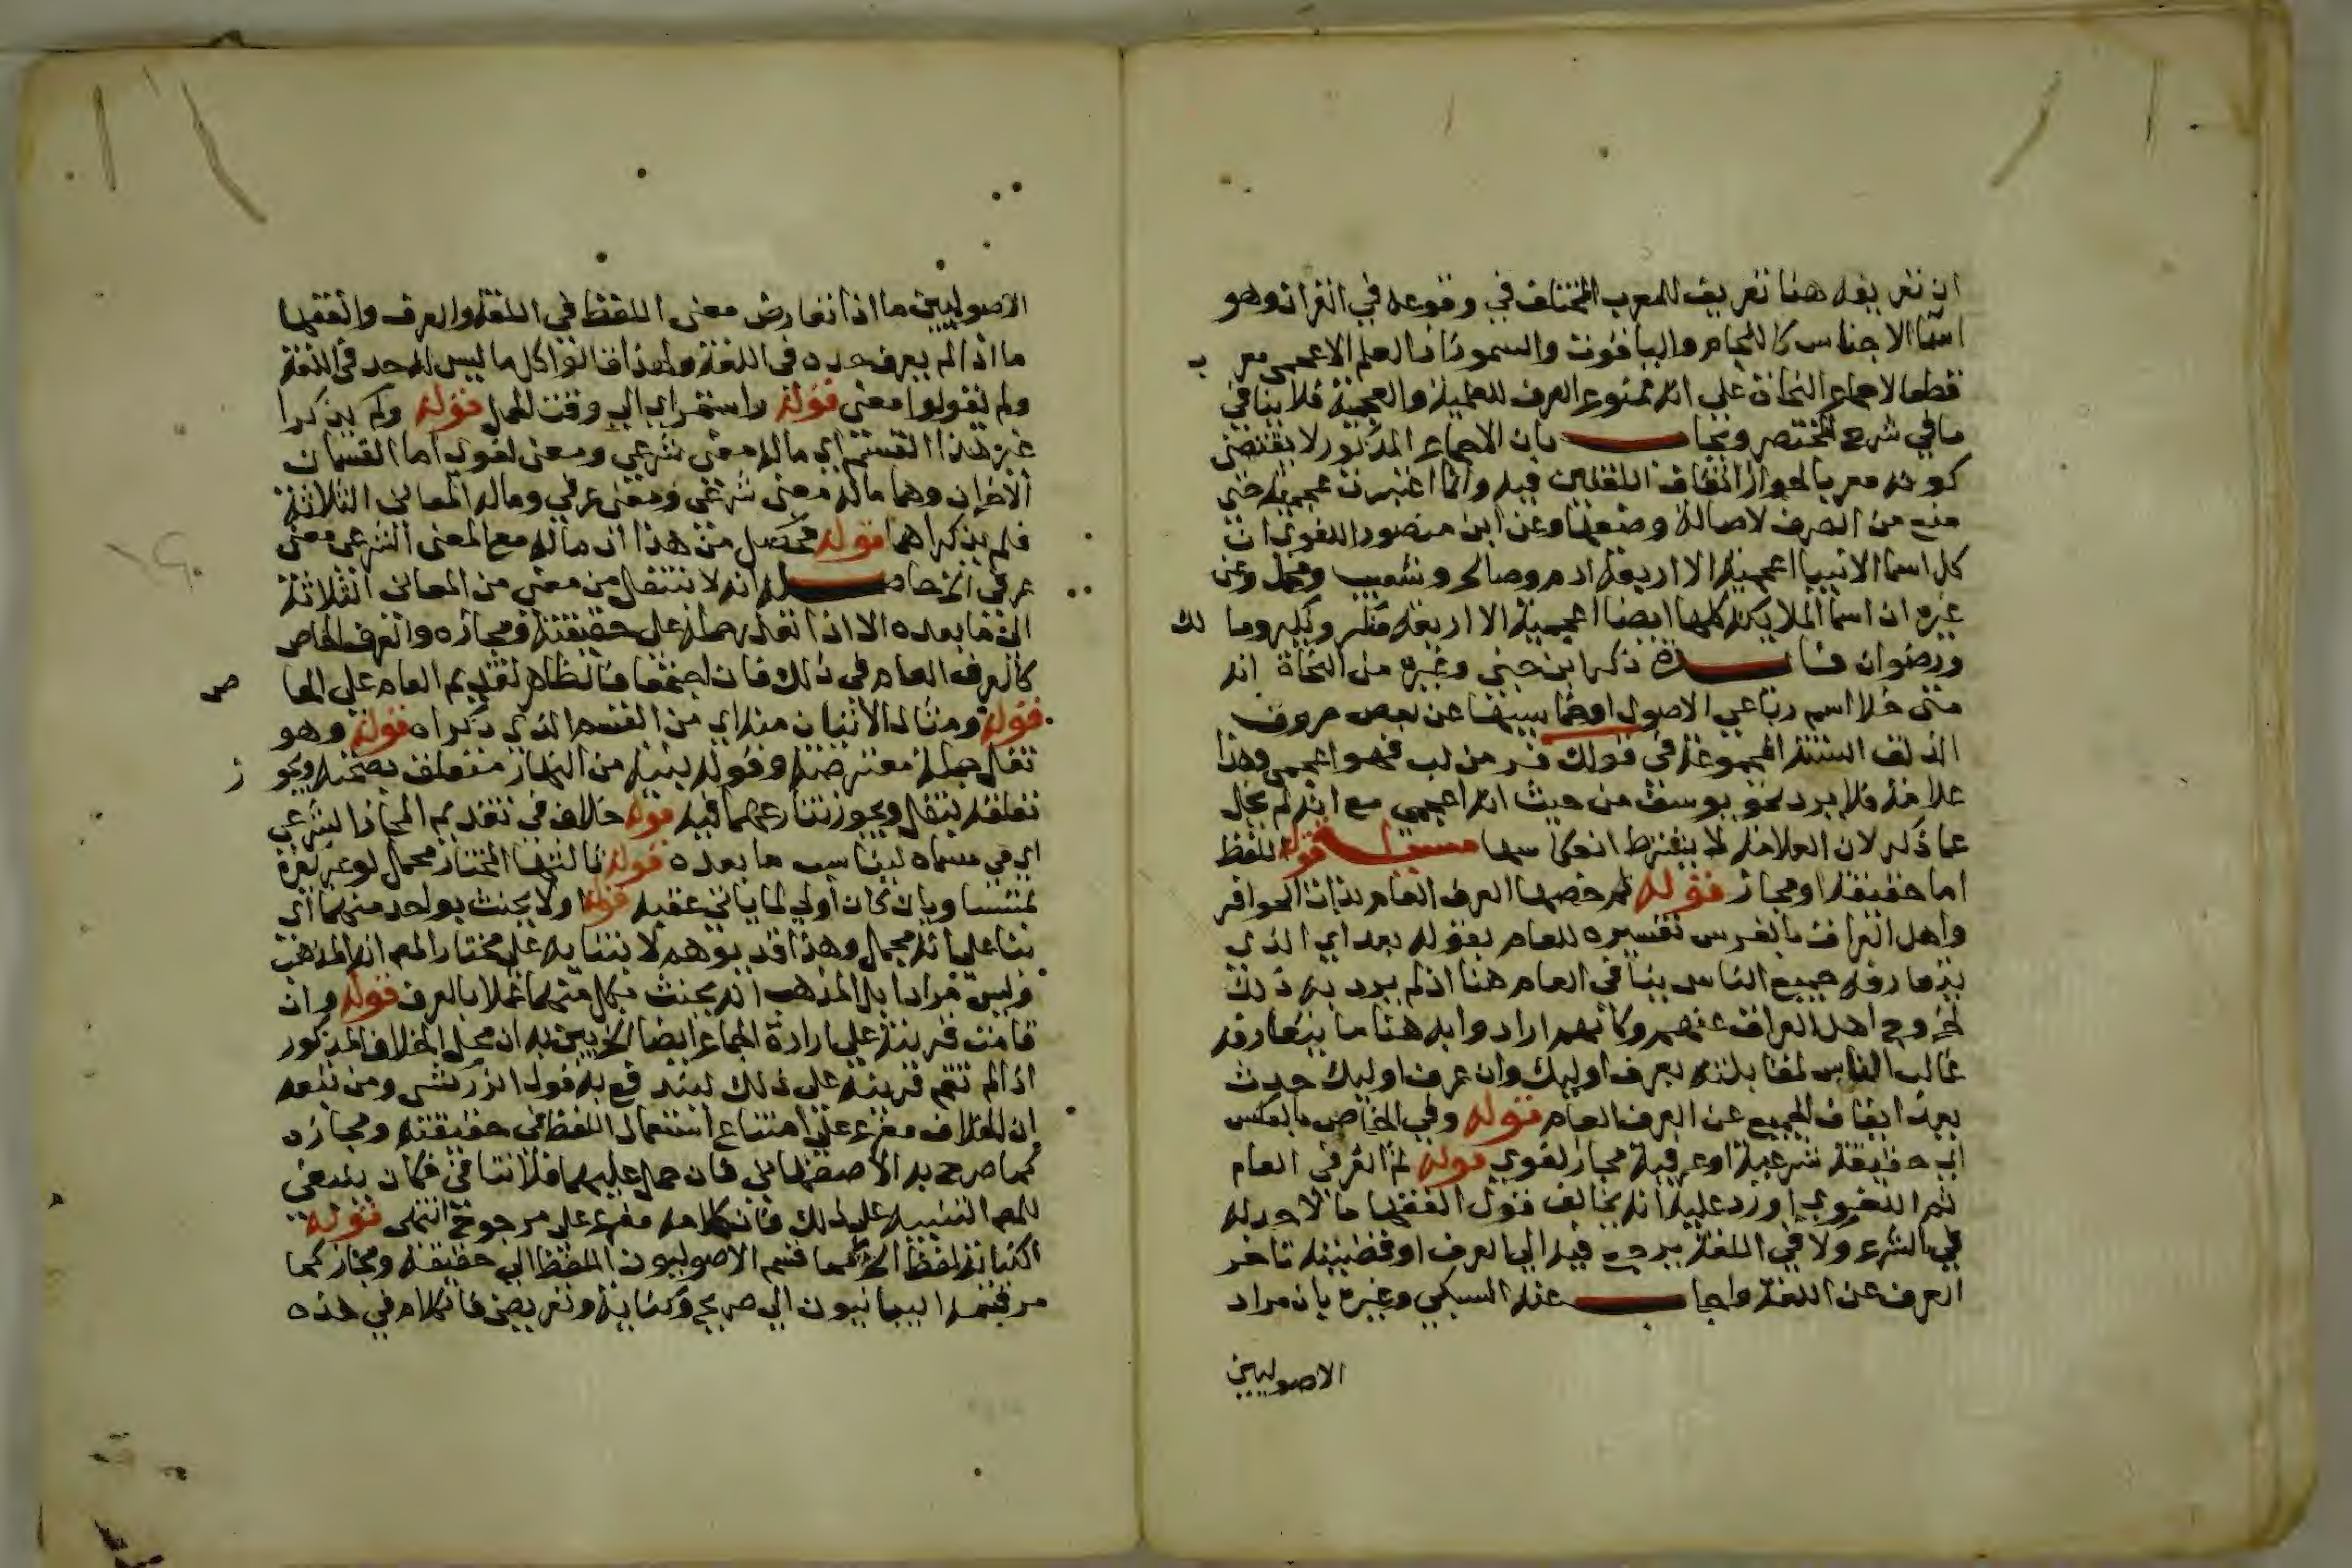 ان تعريفه هنا تعريف للمعرب المختلف في وقوعه في القران وهو
اسما الاجناس كاللجام والياقوت والسمور اذ العلم الاعجمي معرب
قطعا لاجماع النحاة على انه ممنوع الصرف للعلمية والعجمية فلا ينافي
ما في شرح المختصر ويجاب بان الاجماع المذكور لا يقتضي
كونه معربا لجواز اتفاق اللغتين فيه وانما اعتبرت عجميته حتى
منع من الصرف لاصالة وضعها وعن ابن منصور اللغوي ان
كل اسما الانبيا اعجمية الا اربعة ادم وصالح وشعيب ومحمد وعن
غيره ان اسما الملايكة كلها ايضا اعجمية الا اربعة منكر ونكير ومالك
ورضوان فايدة ذكر ابن جني وغيره من النحاة انه
متى خلا اسم رباعي الاصول او خماسيها عن بعض حروف
الذلف الستة المجموعة في قولك فر من لب فهو اعجمي وهذا
علامة فلا يرد نحو يوسف من حيث انه اعجمي مع انه لم يخل
عما ذكر لان العلامة لا يشترط انعكاسها مسئلة قوله اللفظ
اما حقيقة او مجاز قوله ثم خصها العرف العام بذات الحوافر
واهل العراق بالفرس تفسيره للعام بقوله بعد اي الذي
يتعارفه جميع الناس ينافي العام هنا اذ لم يرد به ذلك
لخروج اهل العراق عنهم وكانهم ارادوا به هنا ما يتعارفه
غالب الناس لمقابلته بعرف اوليك وان عرف اوليك حدث
بعد اتفاق الجميع عن العرف العام قوله وفي الخاص بالعكس
اي حقيقة شرعية او عرفية مجاز لغوي قوله ثم العرفي العام
ثم اللغوي اورد عليه انه يخالف قول الفقها ما لا حد له
في الشرع ولا في اللغة يرجع فيه الى العرف او قضيته تاخر
العرف عن اللغة واجاب عنه السبكي وغيره بان مراد
الاصوليين
الاصوليين ما اذا تعارض معنى اللفظ في اللغة والعرف والفقها
ما اذا لم يعرف حده في اللغة ولهذا قالوا كل ما ليس له حد في اللغة
ولم يقولوا معنى قوله واستمر اي الى وقت الحمل قوله ولم يذكرا
غير هذا القسم اي ما له معنى شرعي ومعنى لغوي اما القسمان
الاخران وهما ما له معنى شرعي ومعنى عرفي وما له المعاني الثلاثة
فلم يذكراهما قوله فحصل من هذا ان ما له مع المعنى الشرعي معنى
عرفي الخ حاصله انه لا ينتقل من معنى من المعاني الثلاثة
الى ما بعده الا اذا تعذر حمله على حقيقته ومجازه والعرف الخاص
كالعرف العام في ذلك فان اجتمعا فالظاهر تقديم العام على الخاص
قوله ومثال الاثبات منه اي من القسم الذي ذكراه قوله وهو
نفل جملة معترضة وقوله بنية من النهار متعلق بصحته ويجوز
تعلقه بنفل ويجوز تنازعهما فيه قوله خلاف في تقديم المجاز الشرعي
اي في مسماه ليناسب ما بعده قوله ثالثها المختار مجمل لو عبر بعزة
ولا يحنث بواحد منهما اي
بنا على انه مجمل وهذا قد يوهم لابتنايه على مختار المصنف انه المذهب
وليس مرادا بل المذهب انه يحنث بكل منهما عملا بالعرف قوله وان
قامت قرينة على ارادة المجاز ايضا الخ يبين به ان محل الخلاف المذكور
اذا لم تقم قرينة على ذلك ليندفع به قول الزركشي ومن تبعه
ان الخلاف مفرع على امتناع استعمال اللفظ في حقيقته ومجازه
كما صرح به الاصفهاني فان حمل عليهما فلا تنافي فكان ينبغي
للمصنف التنبيه على ذلك فانه كلامه مفرع على مرجوح انتهى قوله
الكناية لفظ الخ كما قسم الاصوليون اللفظ الى حقيقة ومجاز كما
مر قسمه البيانيون الى صريح وكناية وتعريض فالكلام في هذه